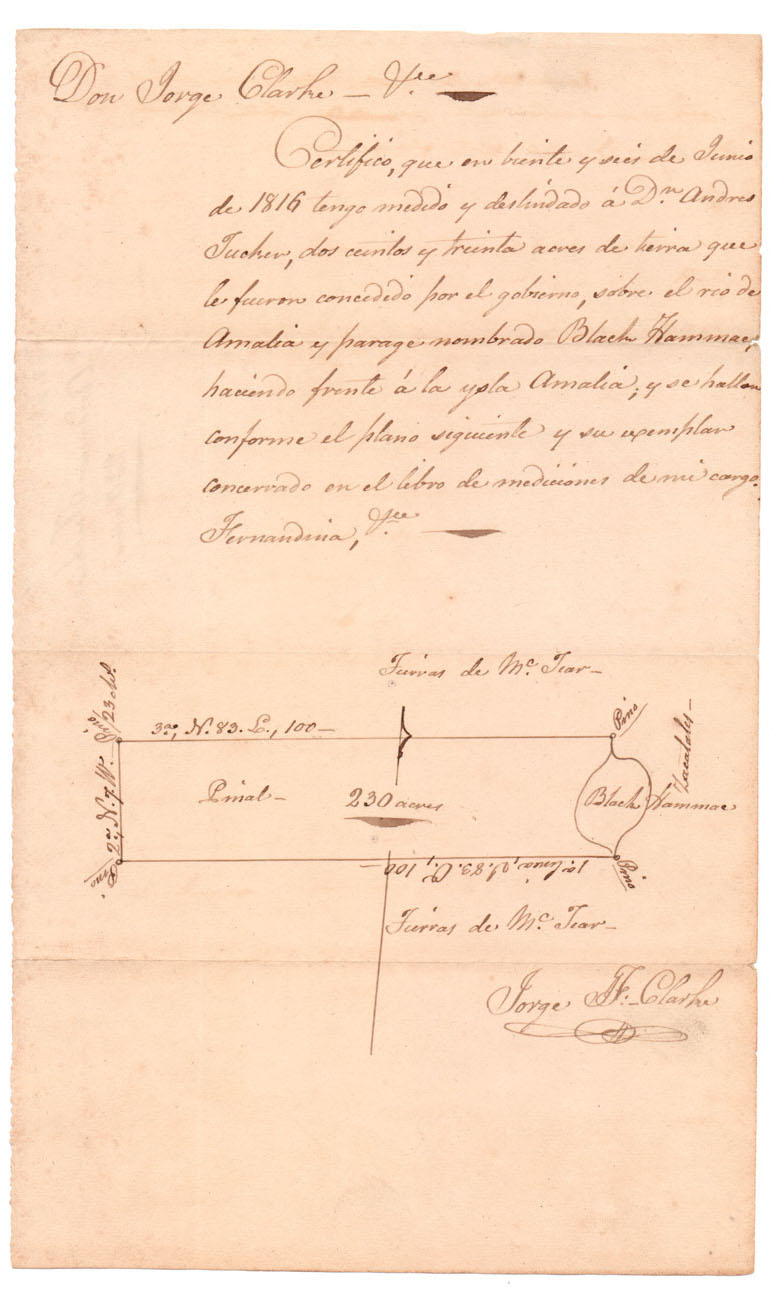 Don Jorge Clarke — &ce
Certifico, que en biente y seis de Junio
de 1816 tengo medido y deslindado á Dn. Andres
Tucker, dos cientos y treinta acres de tierra que
le fueron concedido por el gobierno, sobre el rio de
Amalia y parage nombrado Black Hammac,
haciendo frente á la ysla Amalia; y se hallan
conforme el plano siguiente y su exemplar
concervado en el libro de mediciónes de mi cargo.
Fernandina, &ce
Tierras de Mc. Tear —
3a, N. 83. E., 100 —
Pino
Zacatales —
Pino 23 chs.
2a, N. 7. W. —
Pinal —
230 acres
Black Hammac
Pino
1a linea, S. 83. O., 100 —
Pino
Tierras de Mc. Tear —
Jorge J. F. Clarke